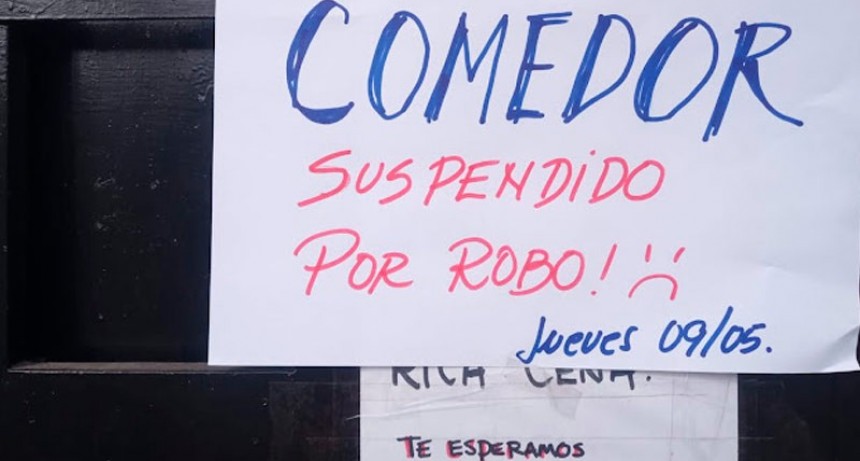 COMEDOR
SUSPENDIDO
POR ROBO! :(
Jueves 09/05.
RICA CENA.
TE ESPERAMOS